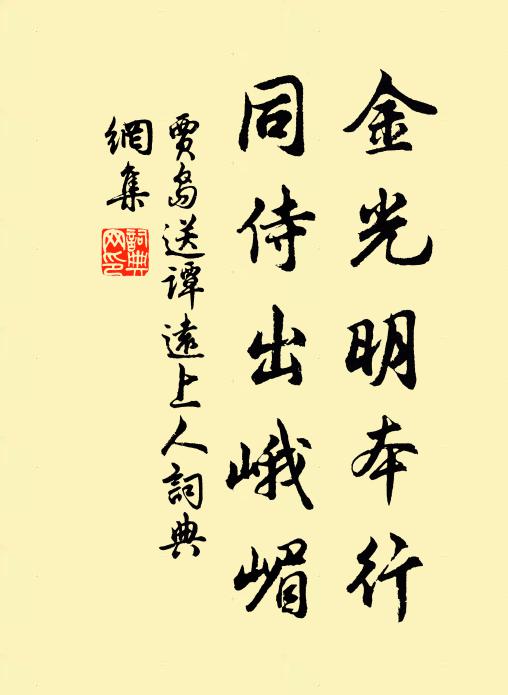 金光明本行
同侍出峨嵋
賈島送譚遠上人詞典
網集
詞典
网印